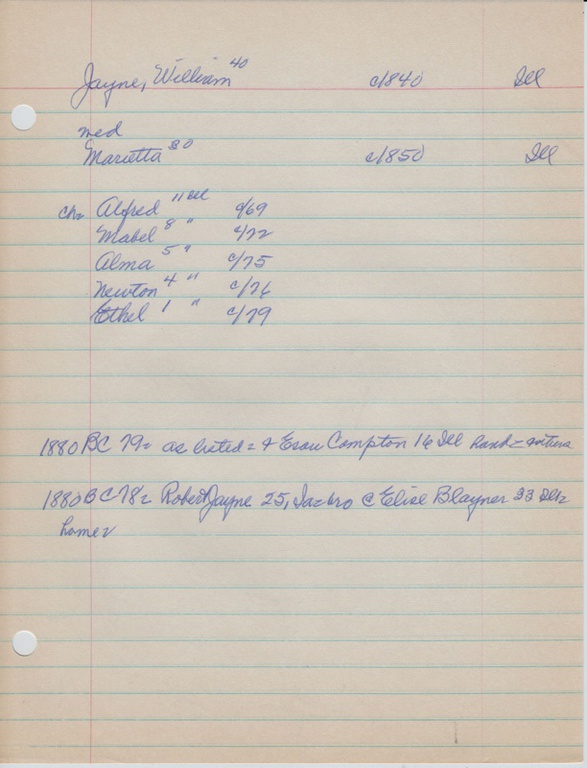 Jayne, William 40 c/1840 Ill
med
Marietta 30 c/1850 Ill
ch= Alfred 11 Ill c/69
Mabel 8 " c/72
Alma 5 " c/75
Newton 4 " c/76
Ethel 1 " c/79
1880 BC 79= as listed= & Esau Compton 16 Ill hand=
1880 BC 78= Robert Jayne 25, Ia=bro @ Elise Blayner 33
home